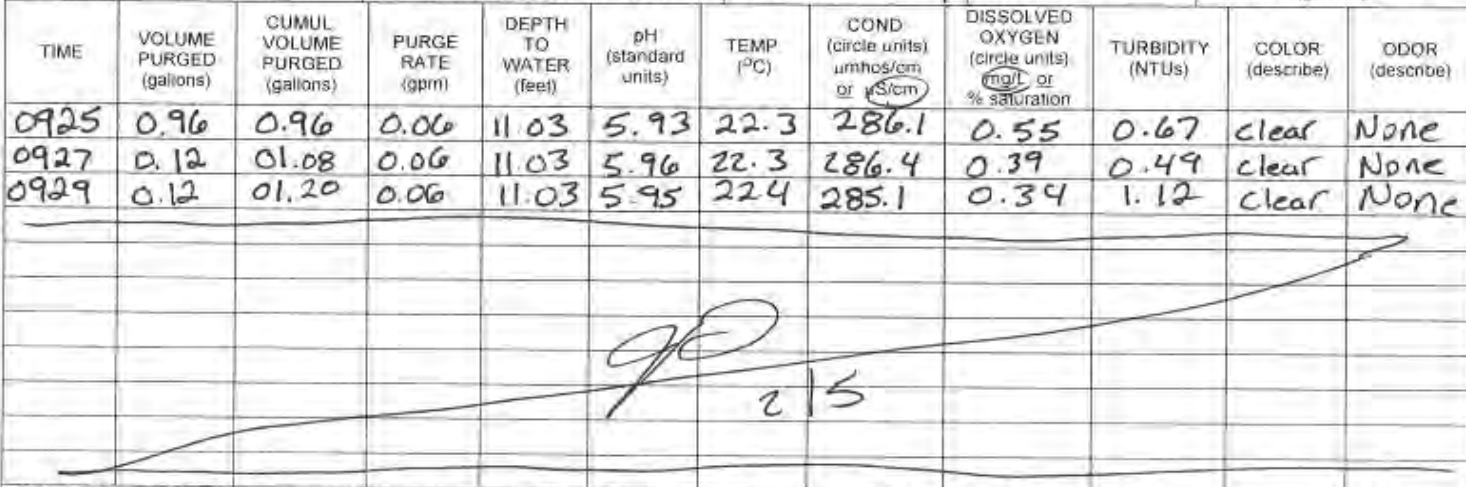 TIME VOLUME PURGED (gallons) CUMUL VOLUME PURGED (gallons) PURGE RATE (gpm) DEPTH TO WATER (feet) pH (standard units) TEMP. (°C) COND (circle units) umhos/cm or µS/cm DISSOLVED OXYGEN (circle units) mg/L or % saturation TURBIDITY (NTUs) COLOR (describe) ODOR (describe)
0925 0.96 0.96 0.06 11.03 5.93 22.3 286.1 0.55 0.67 clear None
0927 0.12 01.08 0.06 11.03 5.96 22.3 286.4 0.39 0.49 clear None
0929 0.12 01.20 0.06 11.03 5.95 22.4 285.1 0.34 1.12 clear None
2 5